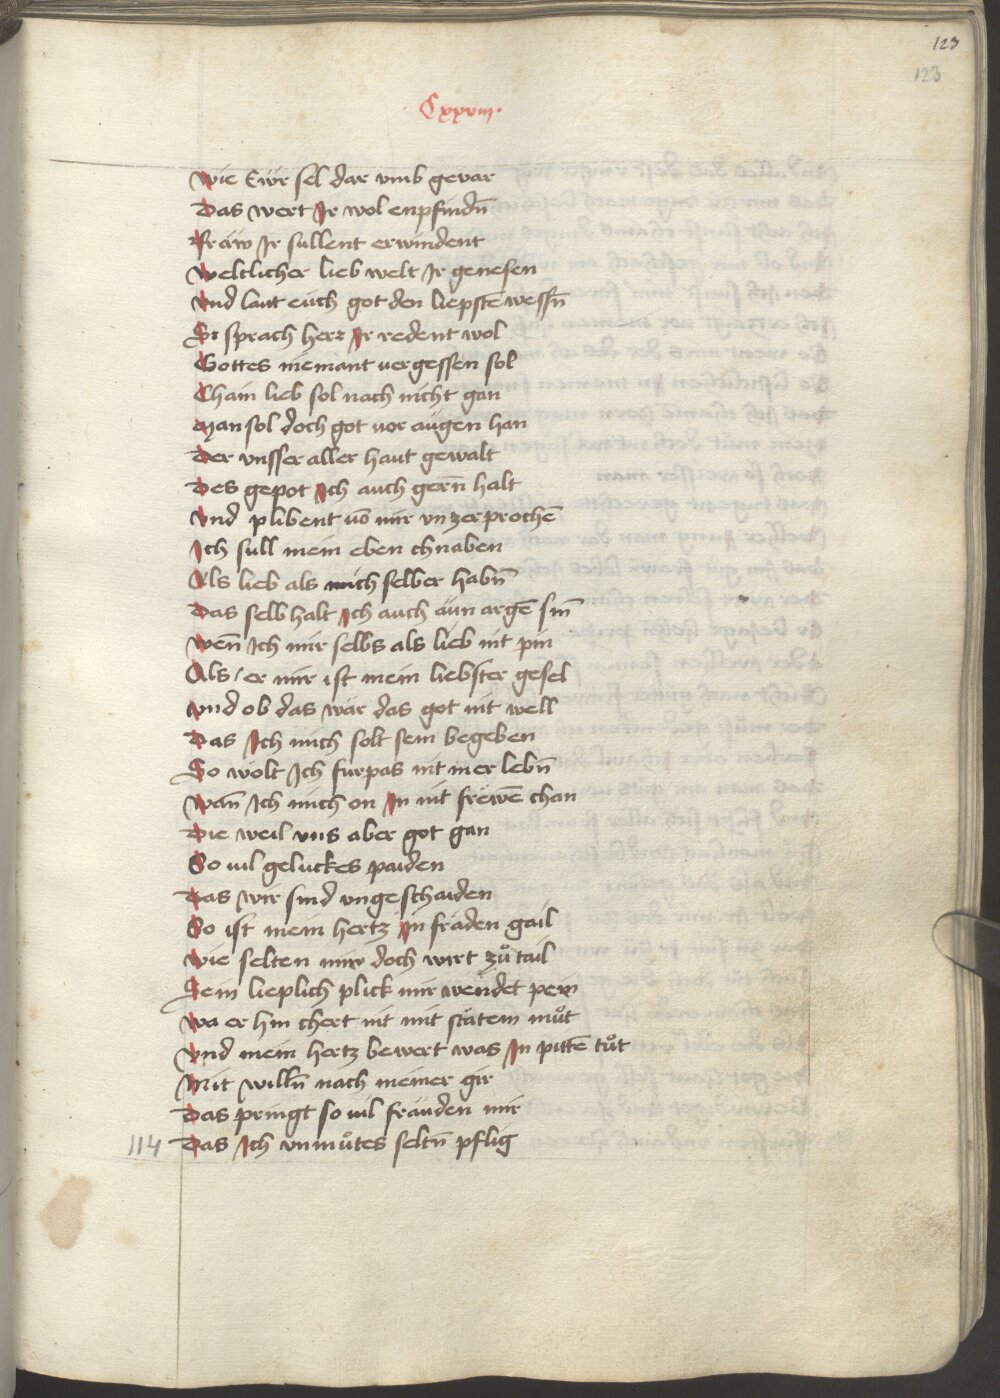 123
123
Cxxviij.
Wie Ewr sel dar vmb gevar
Das wert Ir wol enpfindn̄
Fraw Ir sullent erwindent
Weltlicher lieb welt Ir genesen
Vnd lant euch got den liepstē wessn̄
Si sprach herr Ir redent wol
Gottes niemant vergessen sol
Chain lieb sol nach nicht gan
Man sol doch got vor augen han
Der vnsser aller haut gewalt
Des gepot Ich auch gern̄ halt
Vnd plibent vō mir vnzerprochē
Ich sull mein eben chnaben
Als lieb als mich selber habn̄
Das selb halt Ich auch aun argē sin̄
Wen̄ Ich mir selbs als lieb nit pin
Als er mir ist mein liebster gesel
Vnd ob das wär das got nit well
Das Ich mich solt sein begeben
So wolt Ich furpas nit mer lebn̄
Wan̄ Ich mich on In nit frewē chan
Die weil vns aber got gan
So vil geluckes paiden
Das wir sind vngeschaiden
So ist mein hertz In fräden gail
Wie selten mir doch wirt zuͦ tail
Sein lieplich plick mir wendet pein
Wa er hin chert nit mit stätem muͦt
Vnd mein hertz bewert was In pittē tuͦt
Mit willn̄ nach meiner gir
Das pringt so vil fräuden mir
114 Das Ich vnmuͦtes seltn̄ pflig